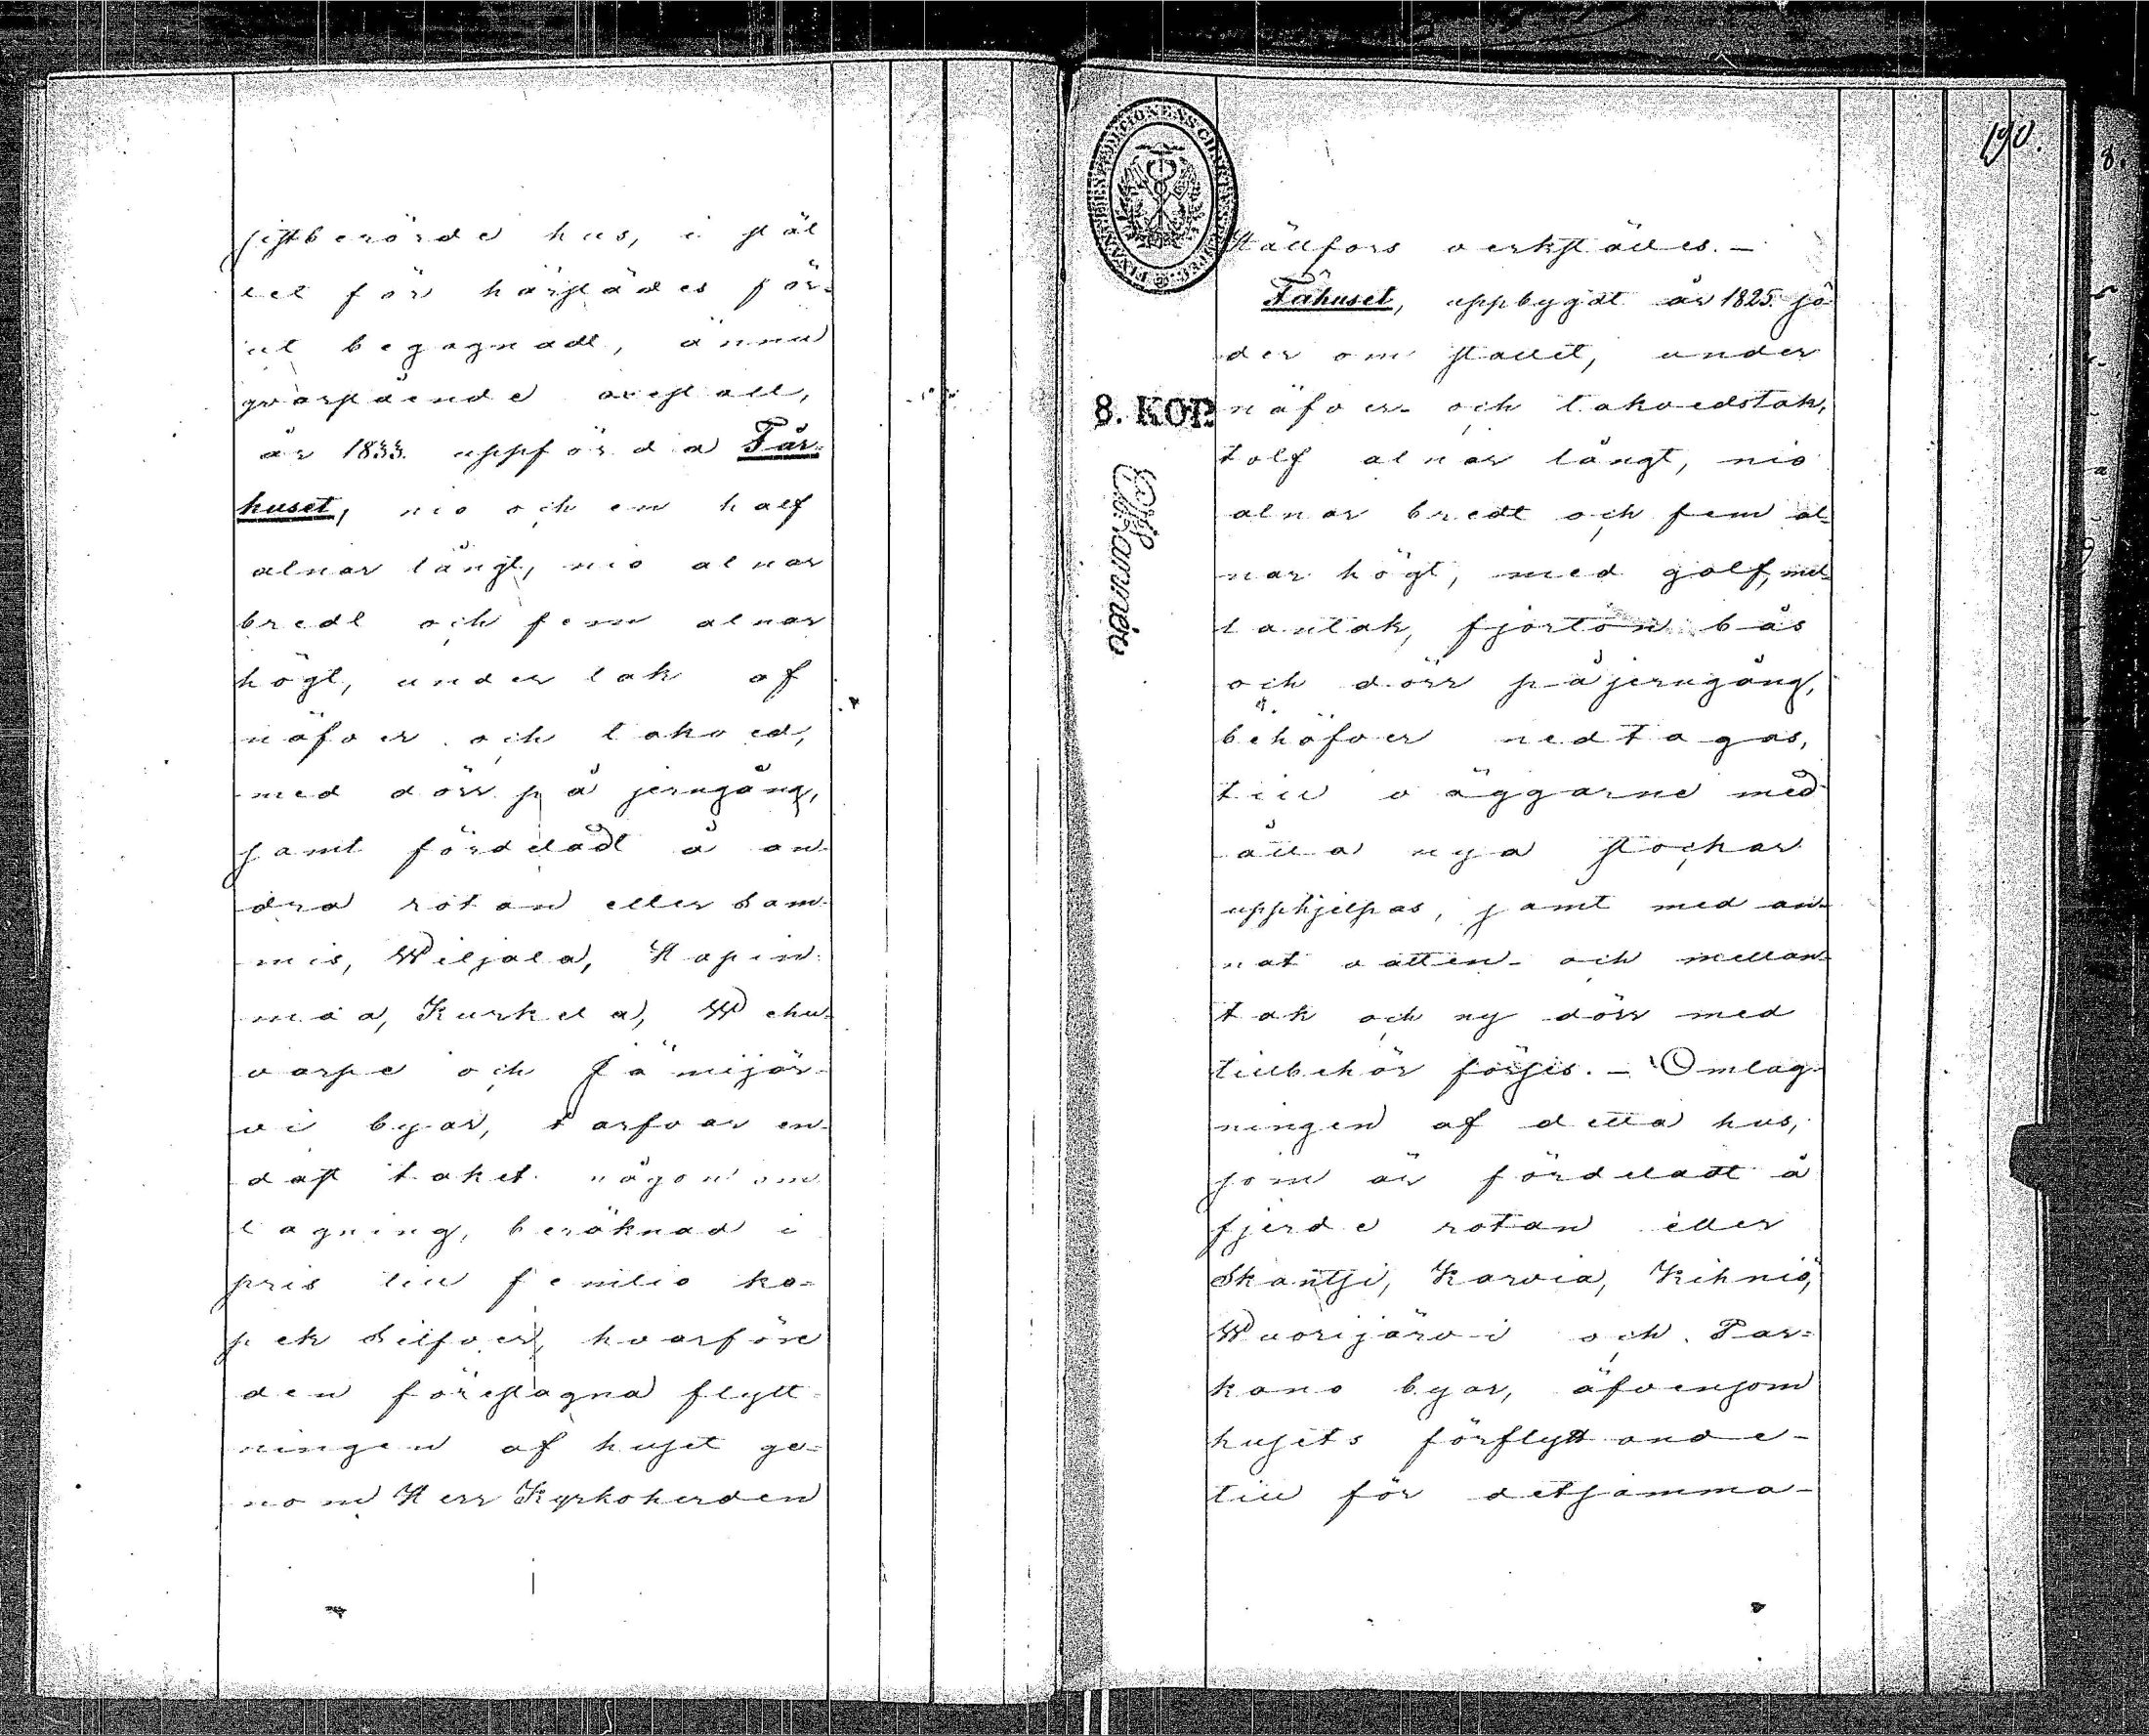 sistberörde hus, i stäl
let för härstädes för-
ut begagnadt, ännu
qvarstående ##stall,
år 1833. uppförda Får-
huset, nio och en half
alnar långt, nio alnar
bredt och fem alnar
högt, under tak af
näfver och takved,
med dörr på jerngång,
samt fördeladt å an-
dra rotan eller Sam-
mis, Wiljala, Hapin-
maa, Kurkela, Wehu-
varpe och Jämijär-
vi byar, tarfvar en-
dast taket någon om
lagning, beräknad i
pris till femtio ko-
pek Silfver, hvarföre
den föreslagna flytt-
ningen af huset ge-
nom Herr Kyrkoherden
190.
FINANCE EXPEDITIONENS CHARTÆ SIGILLATÆ
8. KOP.
Hällfors verkställes. –
Fähuset, uppbygdt år 1825. sö
der om stallet, under
näfver- och takvedstak,
tolf alnar långt, nio
alnar bredt och fem al-
nar högt, med golf, mel-
lantak, fjorton bås
och dörr på jerngång,
behöfver nedtagas,
till väggarne med
alla nya stockar
upphjelpas, samt med an-
nat vatten- och mellan-
tak och ny dörr med
tillbehör förses. – Omlag-
ningen af detta hus,
som är fördeladt å
fjerde rotan eller
Skantsi, Karvia, Kihniö,
Wuorijärvi och Par-
kano byar, äfvensom
husets förflyttande
till för detsamma